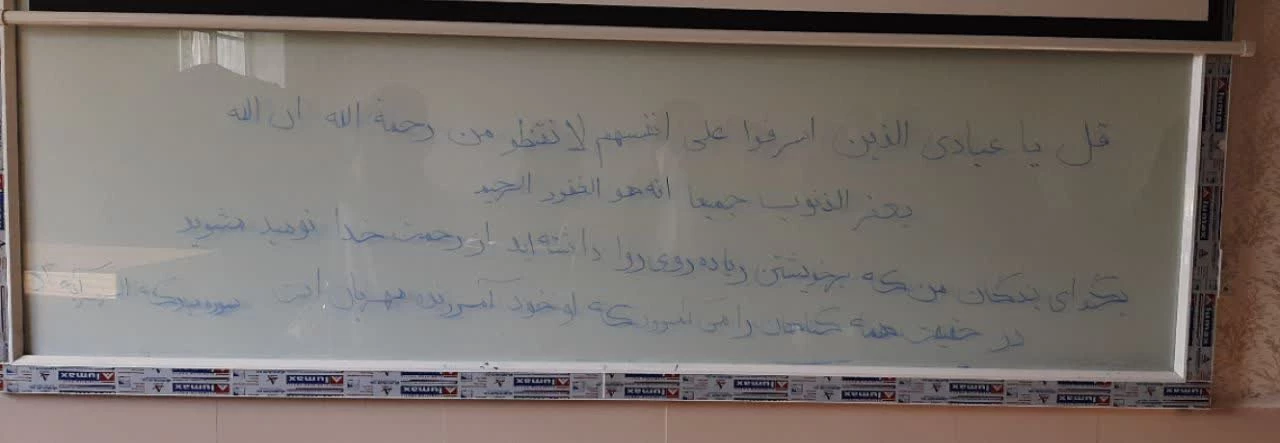 قل یا عبادی الذین اسرفوا علی انفسهم لا تقنطو من رحمة الله ان الله
یغفر الذنوب جمیعا انه هو الغفور الرحیم
بگو ای بندگان من که بر خویشتن زیاده روی روا داشته اید از رحمت خدا نومید مشوید
در حقیقت همه گناهان را می آمرزد که او خود آمرزنده مهربان است سوره مبارکه
Alumax